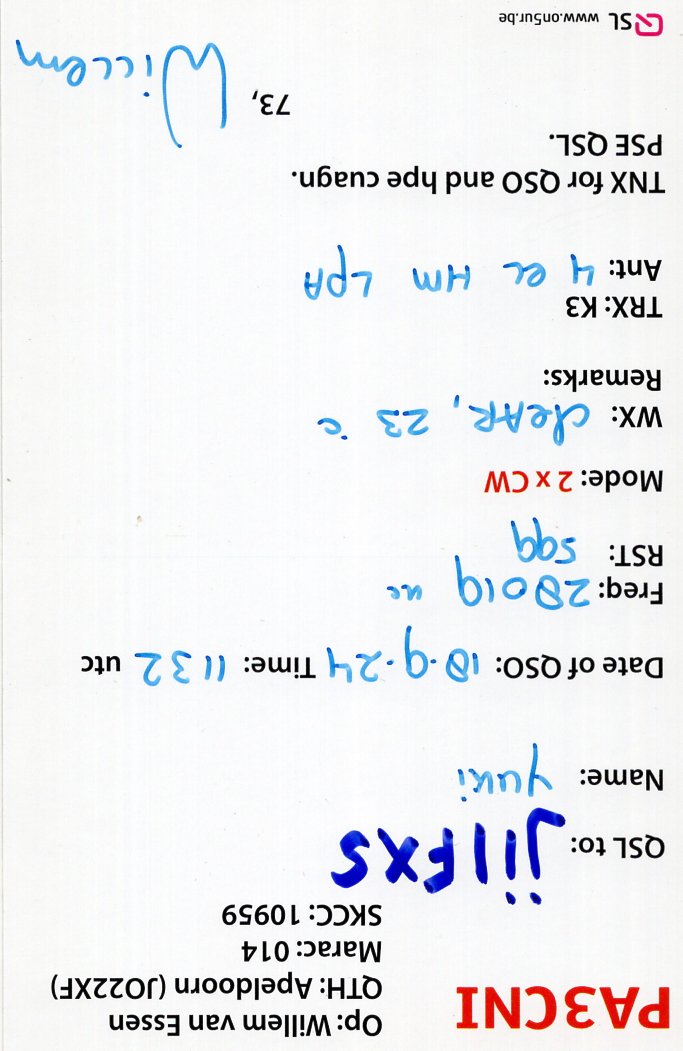 PA3CNI
Op: Willem van Essen
QTH: Apeldoorn (JO22XF)
Marac: 014
SKCC: 10959
QSL to: ji1FXS
Name: Yuki
Date of QSO: 18-9-24 Time: 1132 utc
Freq: 28019
RST: 599
Mode: 2 x CW
WX: cleAR, 23 °c
Remarks:
TRX: K3
Ant: 4 eL HM LpA
TNX for QSO and hpe cuagn.
PSE QSL.
73, Willem
QSL www.on5ur.be